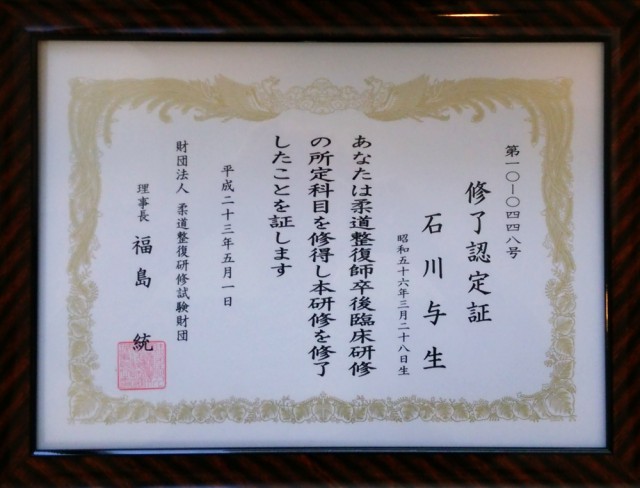 第一〇－〇四四八号
修了認定証
石川与生
昭和五十六年三月二十八日生
あなたは柔道整復師卒後臨床研修
の所定科目を修得し本研修を修了
したことを証します
平成二十三年五月一日
財団法人 柔道整復研修試験財団
理事長 福島 統